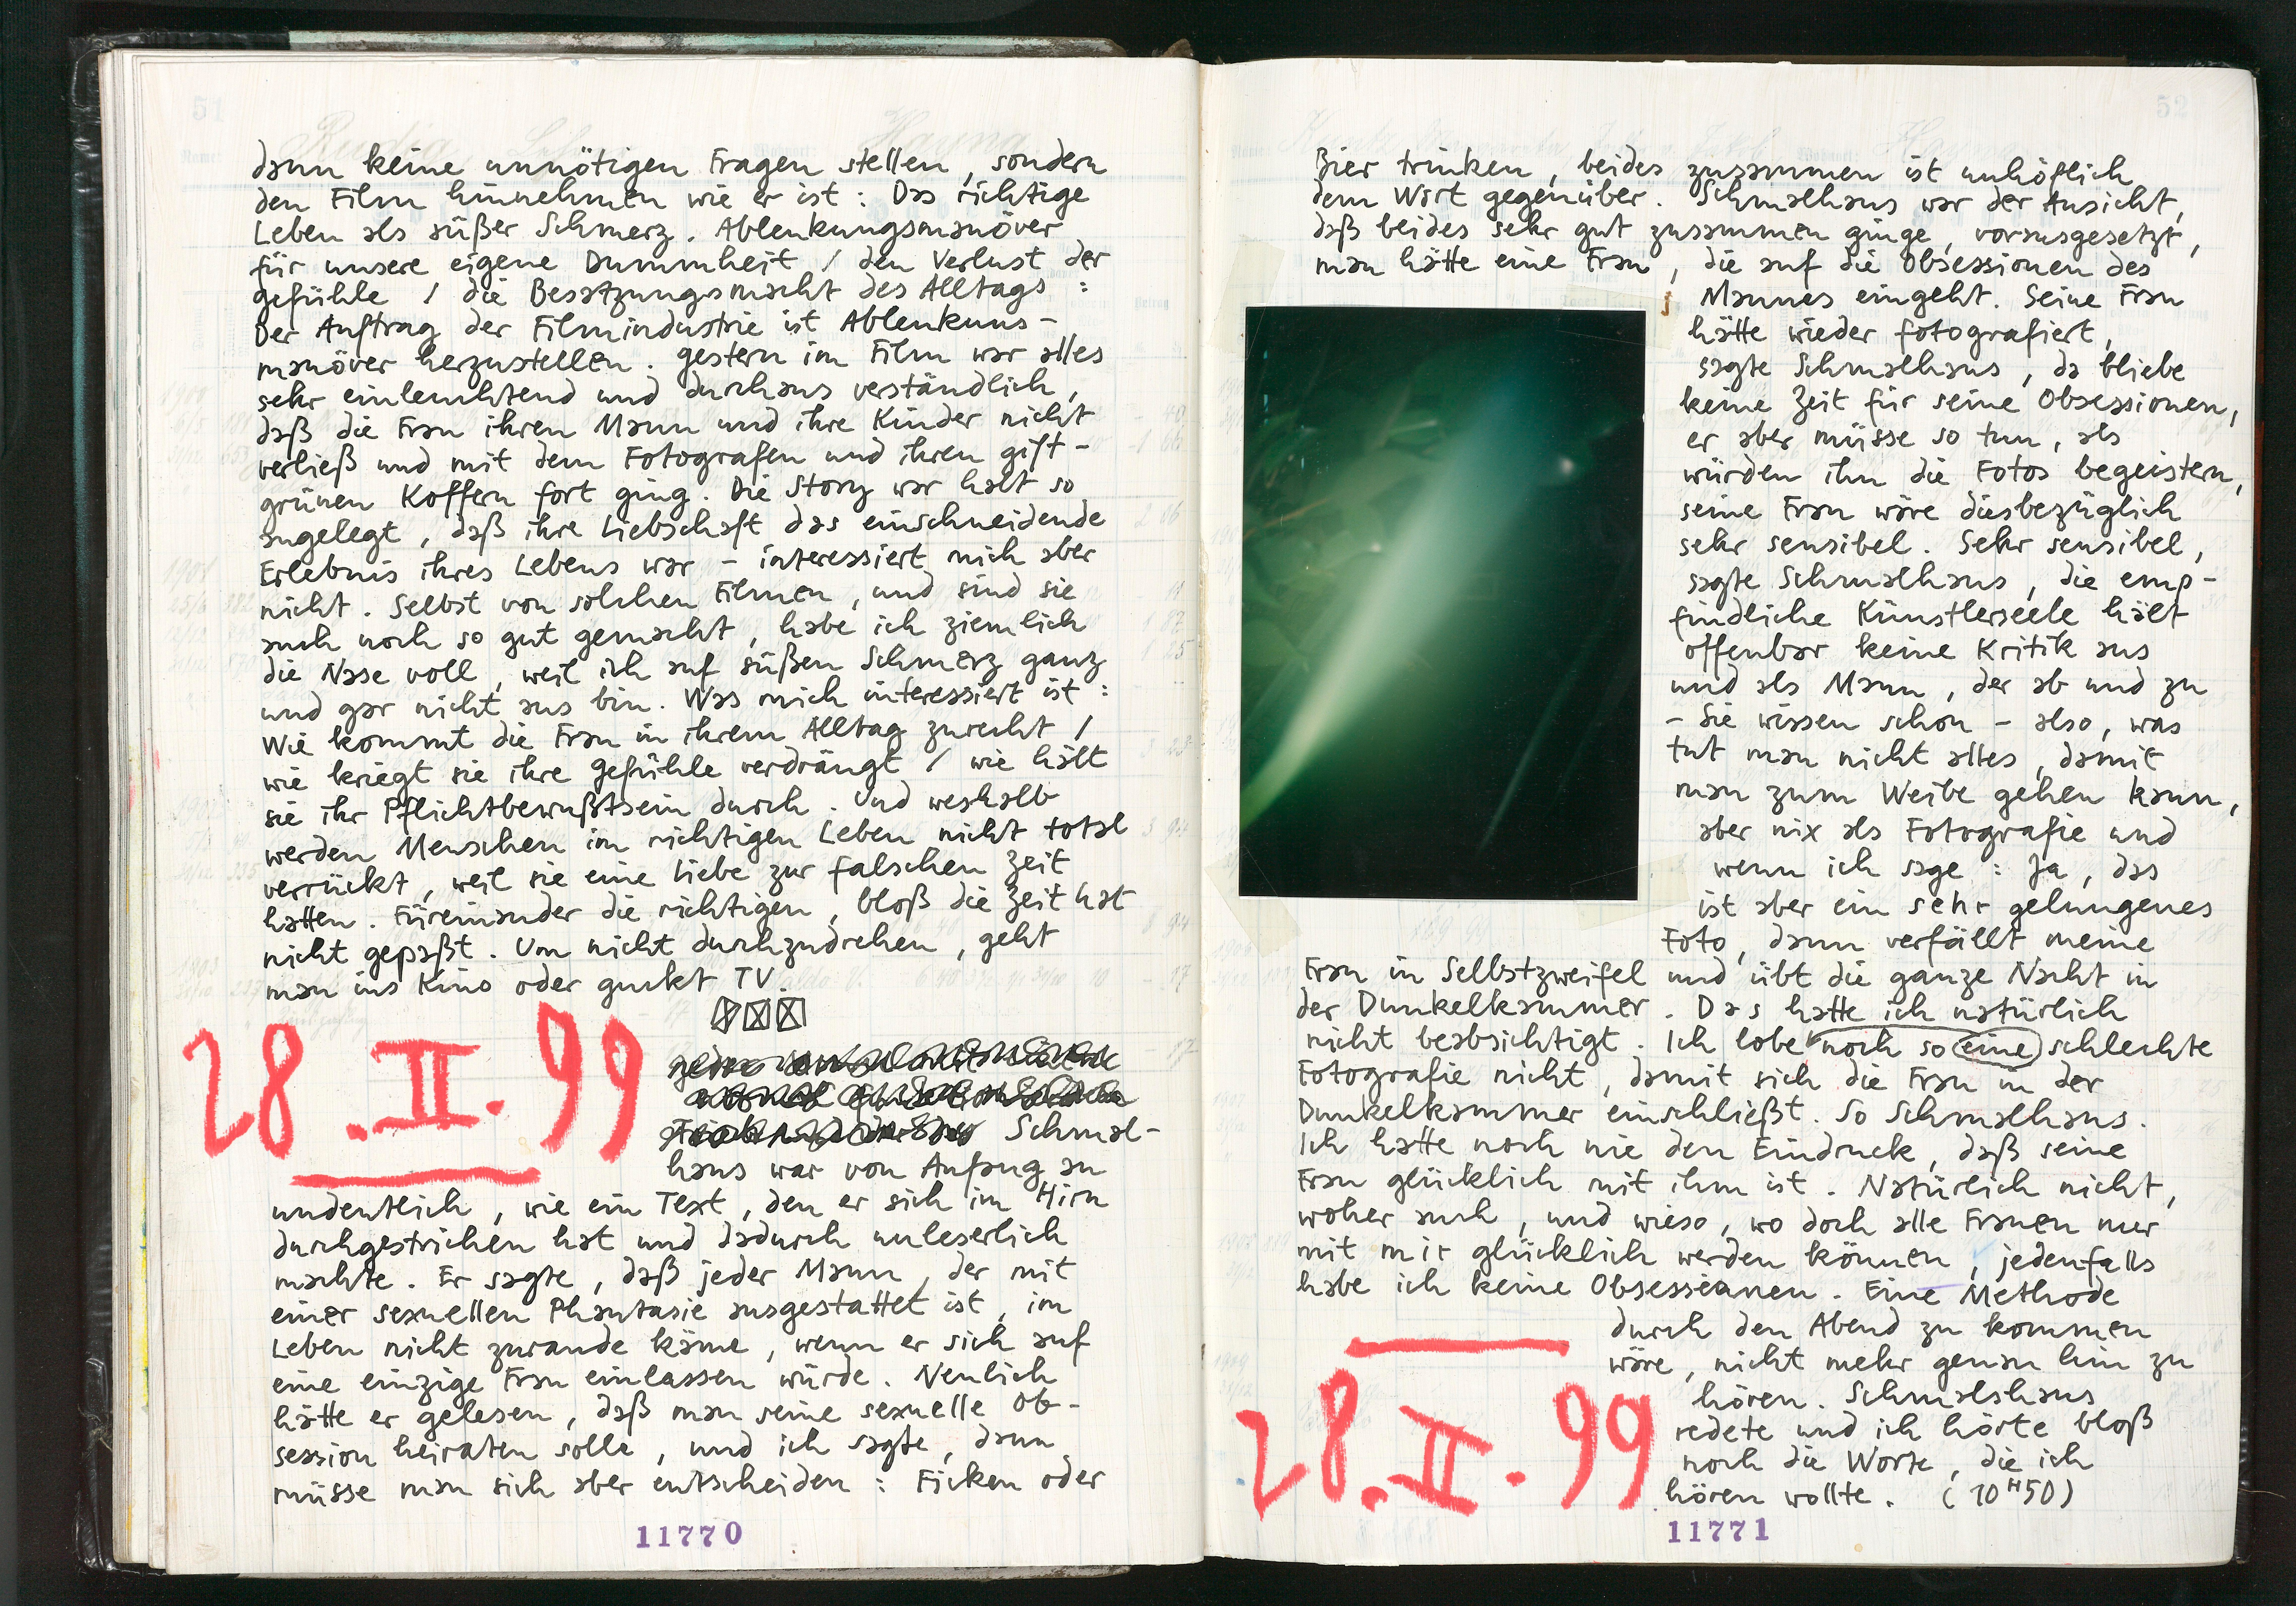 51
dann keine unnötigen Fragen stellen, sondern
den Film hinnehmen wie er ist : Das richtige
Leben als süßer Schmerz. Ablenkungsmanöver
für unsere eigene Dummheit / den Verlust der
Gefühle / die Besatzungsmacht des Alltags :
Der Auftrag der Filmindustrie ist Ablenkuns-
manöver herzustellen. Gestern im Film war alles
sehr einleuchtend und durchaus verständlich,
daß die Frau ihren Mann und ihre Kinder nicht
verließ und mit dem Fotografen und ihren gift-
grünen Koffern fort ging. Die Story war halt so
angelegt, daß ihre Liebschaft das einschneidende
Erlebnis ihres Lebens war – interessiert mich aber
nicht. Selbst von solchen Filmen, und sind sie
auch noch so gut gemacht, habe ich ziemlich
die Nase voll, weil ich auf süßen Schmerz ganz
und gar nicht aus bin. Was mich interessiert ist :
Wie kommt die Frau in ihrem Alltag zurecht /
wie kriegt sie ihre Gefühle verdrängt / wie hält
sie ihr Pflichtbewußtsein durch. Und weshalb
werden Menschen im richtigen Leben nicht total
verrückt, weil sie eine Liebe zur falschen Zeit
hatten. Füreinander die richtigen, bloß die Zeit hat
nicht gepaßt. Um nicht durchzudrehen, geht
man ins Kino oder guckt TV.
28.II.99
Schmal-
haus war von Anfang an
undeutlich, wie ein Text, den er sich im Hirn
durchgestrichen hat und dadurch unleserlich
machte. Er sagte, daß jeder Mann, der mit
einer sexuellen Phantasie ausgestattet ist, im
Leben nicht zurande käme, wenn er sich auf
eine einzige Frau einlassen würde. Neulich
hätte er gelesen, daß man seine sexuelle Ob-
session heiraten solle, und ich sagte, dann
müsse man sich aber entscheiden : Ficken oder
11770
52
Bier trinken, beides zusammen ist unhöflich
dem Wirt gegenüber. Schmalhaus war der Ansicht,
daß beides sehr gut zusammen ginge, vorausgesetzt,
man hätte eine Frau, die auf die Obsessionen des
Mannes eingeht. Seine Frau
hätte wieder fotografiert,
sagte Schmalhaus, da bliebe
keine Zeit für seine Obsessionen,
er aber müsse so tun, als
würden ihn die Fotos begeistern,
seine Frau wäre diesbezüglich
sehr sensibel. Sehr sensibel,
sagte Schmalhaus, die emp-
findliche Künstlerseele hält
offenbar keine Kritik aus
und als Mann, der ab und zu
– Sie wissen schon – also, was
tut man nicht alles, damit
man zum Weibe gehen kann,
aber nix als Fotografie und
wenn ich sage : Ja, das
ist aber ein sehr gelungenes
Foto, dann verfällt meine
Frau in Selbstzweifel und übt die ganze Nacht in
der Dunkelkammer. Das hatte ich natürlich
nicht beabsichtigt. Ich lobe noch so eine schlechte
Fotografie nicht, damit sich die Frau in der
Dunkelkammer einschließt. So Schmalhaus.
Ich hatte noch nie den Eindruck, daß seine
Frau glücklich mit ihm ist. Natürlich nicht,
woher auch, und wieso, wo doch alle Frauen nur
mit mir glücklich werden können, jedenfalls
habe ich keine Obsessionen. Eine Methode
durch den Abend zu kommen
wäre, nicht mehr genau hin zu
hören. Schmalshaus
redete und ich hörte bloß
noch die Worte, die ich
hören wollte. (10H50)
28.II.99
11771